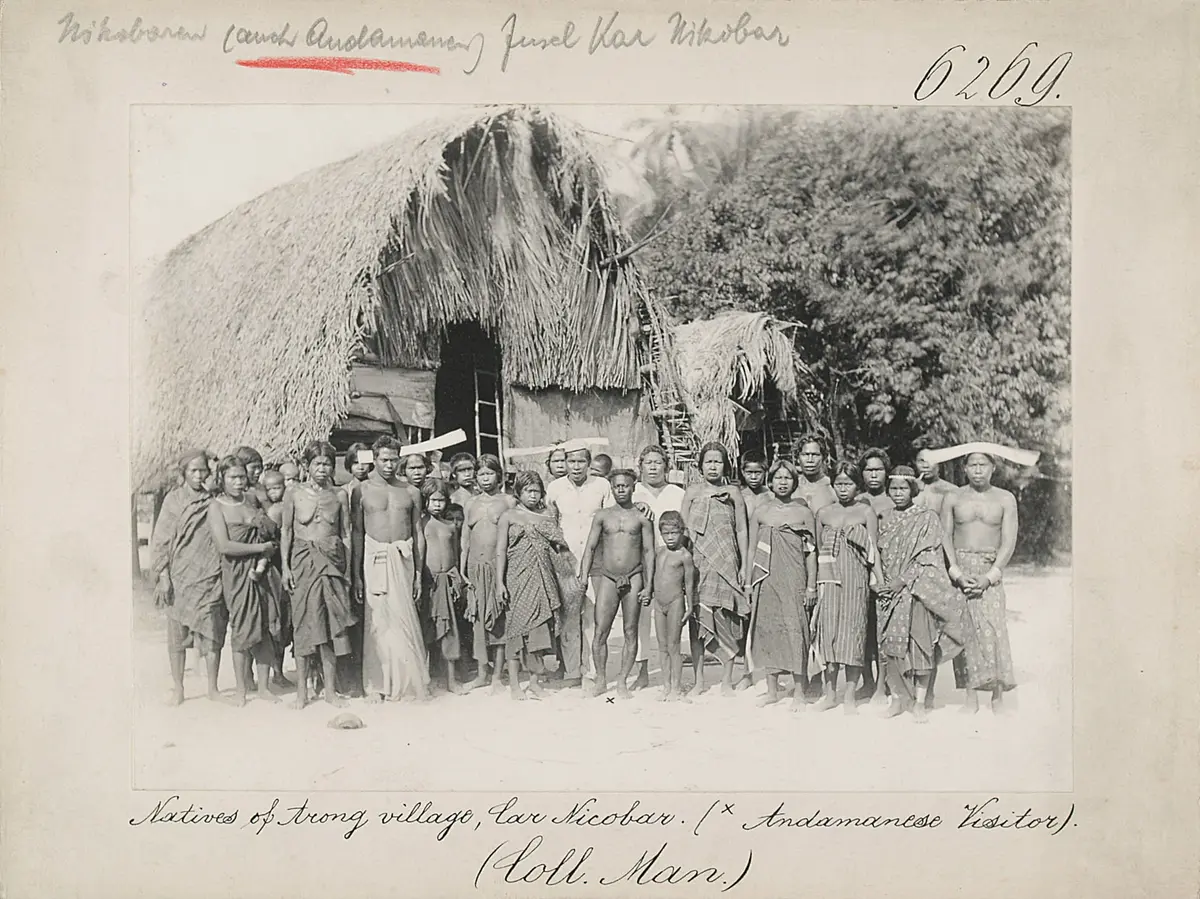 Nikobaren (auch Andamanen) Insel Kar Nikobar
6269.
x
Natives of Arong village, Car Nicobar. (x Andamanese Visitor).
(Coll. Man.)